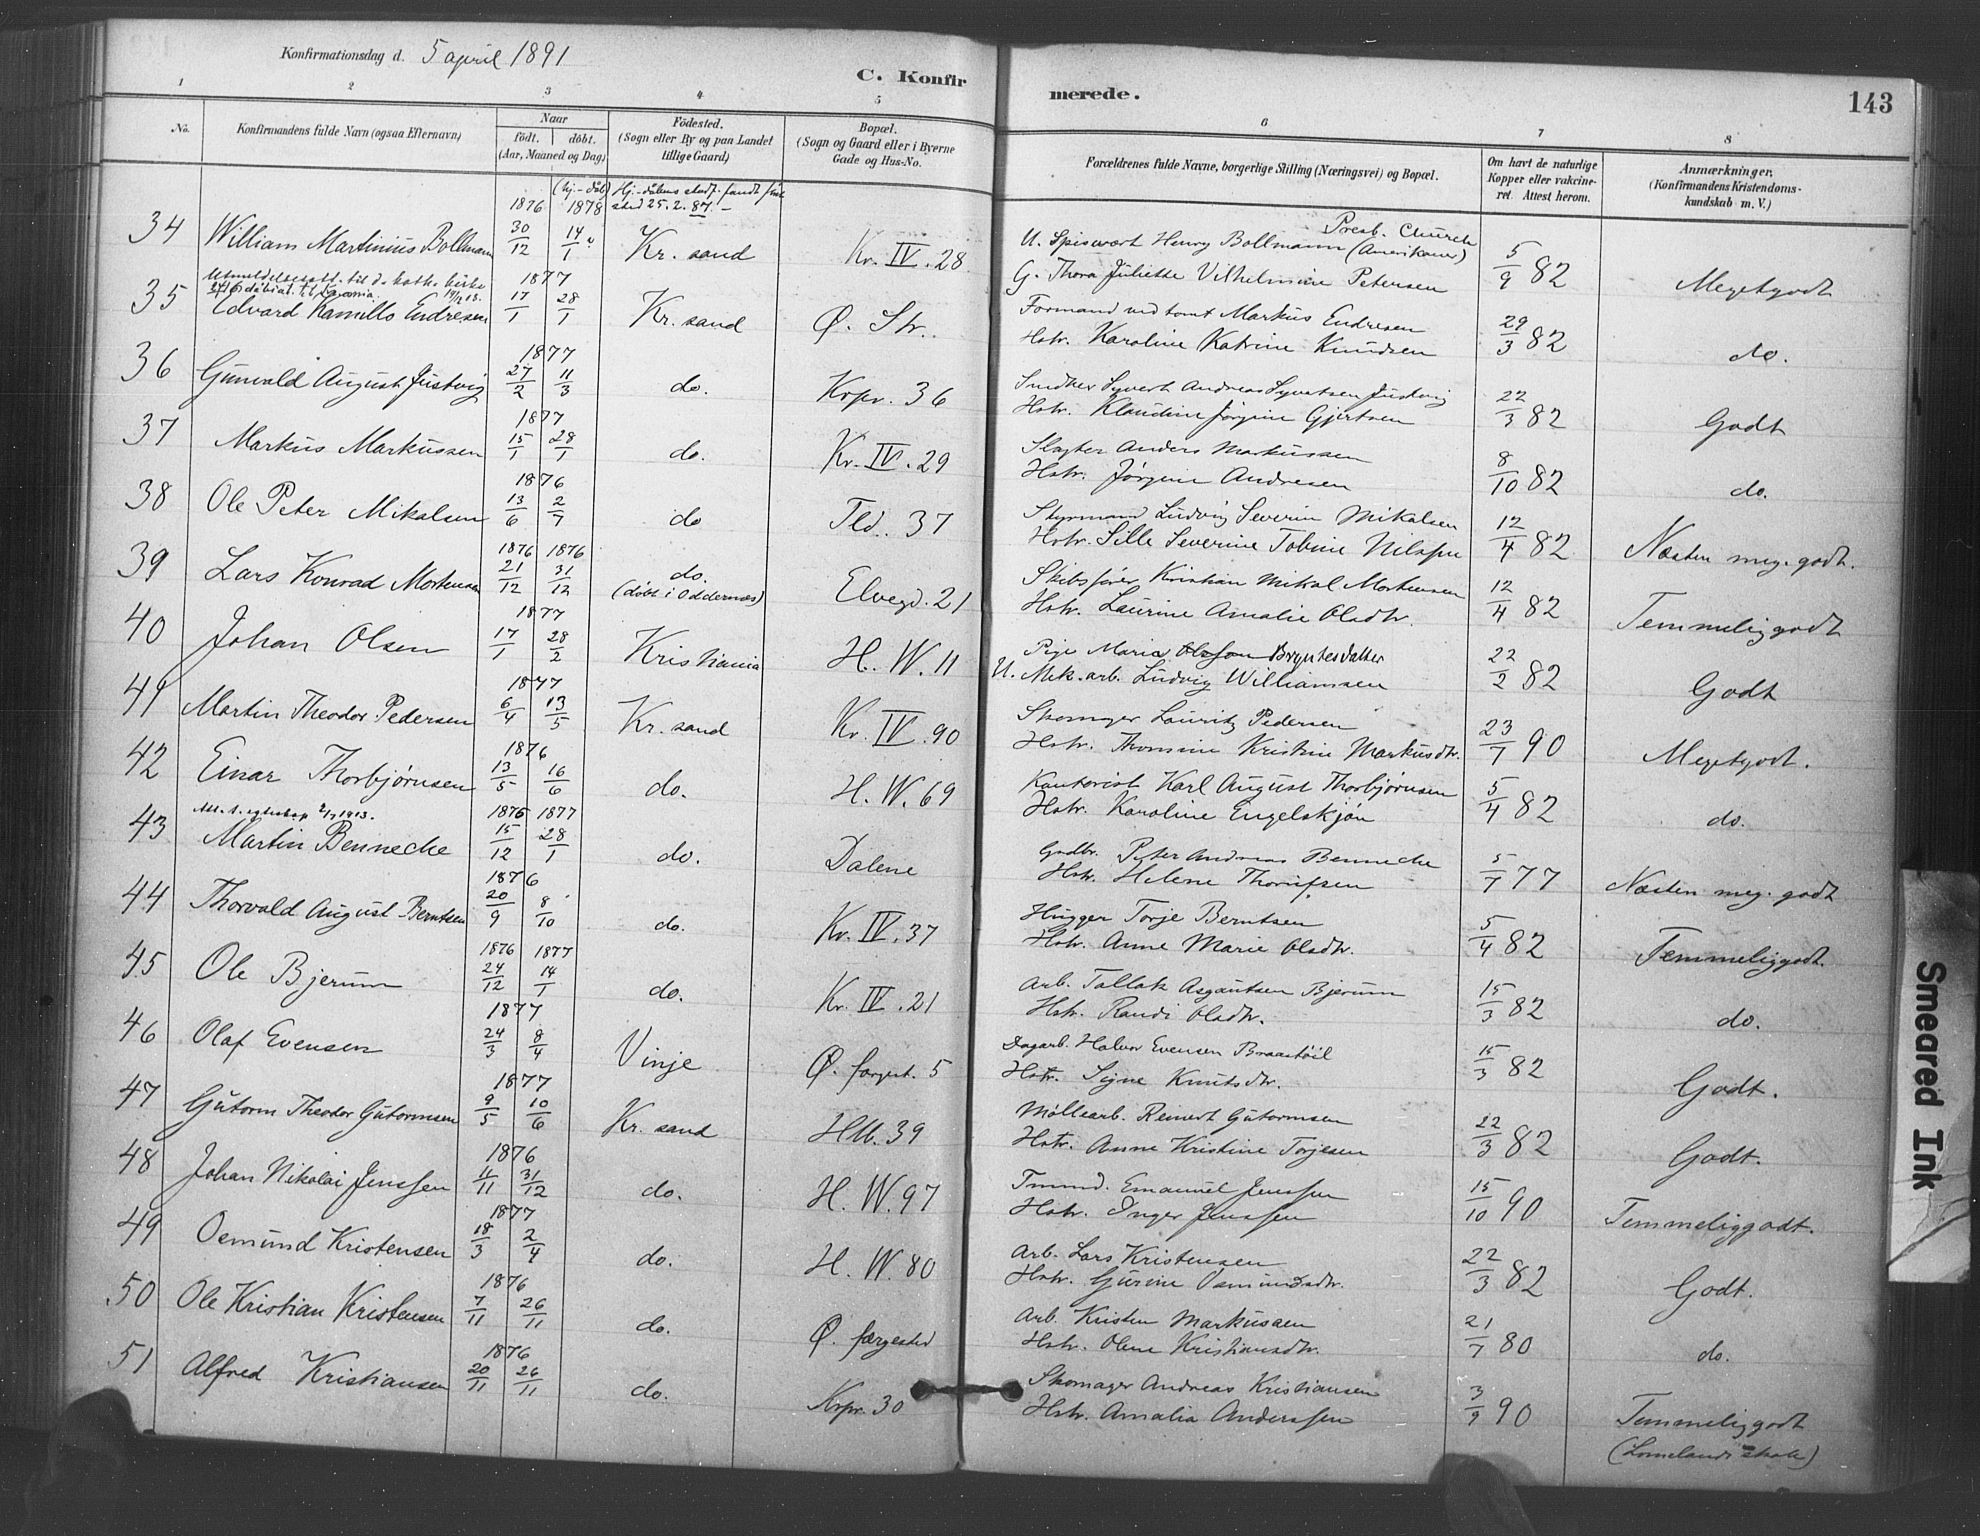 Konfirmationsdag d. 5 april 1891
C. Konfirmerede.
143
1 2 3 4 5 6 7 8
No.
Konfirmandens fulde Navn (ogsaa Efternavn)
Naar
födt. döbt.
(Aar, Maaned og Dag)
Födested.
(Sogn eller By og paa Landet
tillige Gaard)
Bopæl.
(Sogn og Gaard eller i Byerne
Gade og Hus-No.
Forældrenes fulde Navne, borgerlige Stilling (Næringsvei) og Bopæl.
Om havt de naturlige
Kopper eller vakcine-
ret. Attest herom.
Anmærkninger.
(Konfirmandens Kristendoms-
kundskab m. V.)
(hj.-døbt) Hj.-dåbens stadf. fandt
sted 25.2.87.
34 William Martinius Bollmann 1876 30/12 1878 14/1 Kr. sand Kr. IV. 28
Presb. Church
U. Spisevært Henry Bollmann (Amerikaner)
G. Thora Juliette Vilhelmine Petersen 5/9 82 Megetgodt
35 Edvard Kamillo Endresen 1877 17/1 28/1 Kr. sand Ø. Str.
Formand ved tomt Markus Endresen
Hstr. Karoline Katrine Knudsen 29/3 82 do.
36 Gunvald August Justvig 1877 27/2 11/3 do. Krpr. 36
Snedker Syvert Andreas Syvertsen Justvig
Hstr. Klaudine Jørgine Gjertsen 22/3 82 Godt
37 Markus Markussen 1877 15/1 28/1 do. Kr. IV. 29
Slagter Anders Markussen
Hstr. Jørgine Andresen 8/10 82 do.
38 Ole Peter Mikalsen 1876 13/6 2/7 do Tld. 37
Styrmand Ludvig Severin Mikalsen
Hstr. Sille Severine Tobine Nilssen 12/4 82 Næsten meg. godt.
39 Lars Konrad Mortensen 1876 21/12 1876 31/12 do. (døbt i Oddernes) Elvegd. 21
Skibsfører Kristian Mikal Mortensen
Hstr. Laurine Amalie Olsdtr. 12/4 82 Temmeliggodt
40 Johan Olsen 1877 17/1 28/2 Kristiania H. W. 11
Pige Maria Olsson Bryntesdatter
U. Mek. arb. Ludvig Williamsen 22/2 82 Godt
41 Martin Theodor Pedersen 1877 6/4 13/5 Kr. sand Kr. IV. 90
Skomager Lauritz Pedersen
Hstr. Thomine Kristine Markusdtr. 23/7 90 Megetgodt.
42 Einar Thorbjørnsen 1876 13/5 16/6 do. H. W. 69
Kontorist Karl August Thorbjørnsen
Hstr. Karoline Engelskjøn 5/4 82 do.
43 Martin Bennecke 1876 15/12 1877 28/1 do. Dalene
Peter Andreas Bennecke
Hstr. Helene 5/7 77 Næsten meg. godt
44 Thorvald August Berntsen 1876 20/9 8/10 do. Kr. IV. 37
Hugger Torje Berntsen
Hstr. Anne Marie Olsdtr. 5/4 82 Temmeliggodt.
45 Ole Bjerum 1876 24/12 1877 14/1 do. Kr. IV. 21
Arb. Tallak Asgautsen Bjerum
Hstr. Randi Olsdtr. 15/3 82 do.
46 Olaf Evensen 1877 24/3 8/4 Vinje Ø. færgest. 5
Dagarb. Halvor Evensen
Hstr. Signe Knutsdtr. 15/3 82 Godt.
47 Gutorm Theodor Gutormsen 1877 9/5 10/6 Kr. sand 39
Møllearb. Reinert Gutormsen
Hstr. Anne Kristine Torjesen 22/3 82 Godt.
48 Johan Nikolai Jenssen 1876 11/11 31/12 do. H. W. 97
Tmmd. Emanuel Jenssen
Hstr. Inger Jenssen 15/10 90 Temmeliggodt.
49 Osmund Kristensen 1877 18/3 2/4 do. H. W. 80
Arb. Lars Kristensen
Hstr. Gurine Osmundsdtr. 22/3 82 Godt.
50 Ole Kristian Kristensen 1876 7/11 26/11 do. Ø. færgested
Arb. Kristen Markussen
Hstr. Olene Kristiansdtr. 21/7 80 do.
51 Alfred Kristiansen 1876 20/11 26/11 do. Krpr. 30
Skomager Andreas Kristiansen
Hstr. Amalia Anderssen 3/9 90 Temmeliggodt
(Lomelands skole)
Smeared Ink